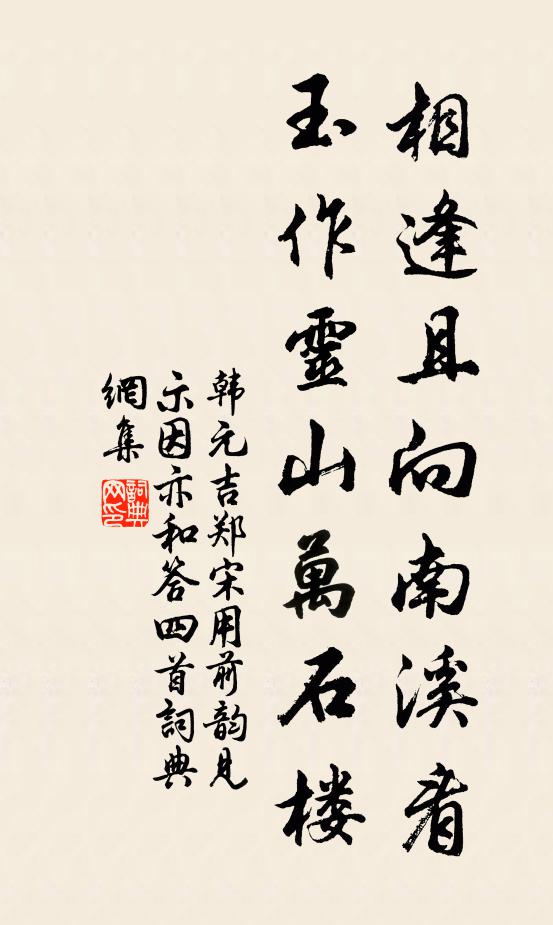 相逢且向南溪看
玉作靈山萬石楼
韩元吉郑宋用前韵見
示因亦和答四首詞典
網集
詞典
网印